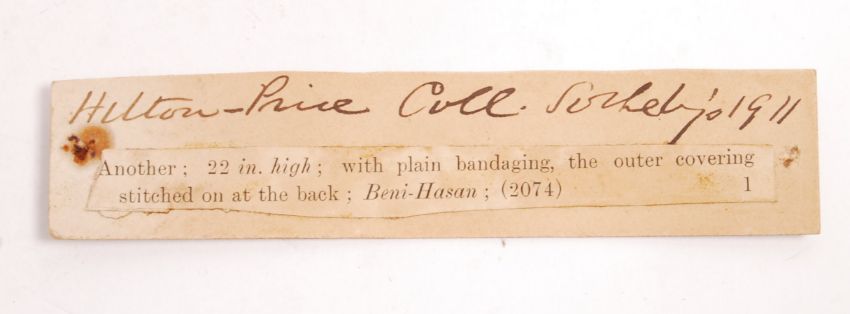 Hilton-Price Coll. Sotheby's 1911
Another ; 22 in. high ; with plain bandaging, the outer covering
stitched on at the back ; Beni-Hasan ; (2074) 1